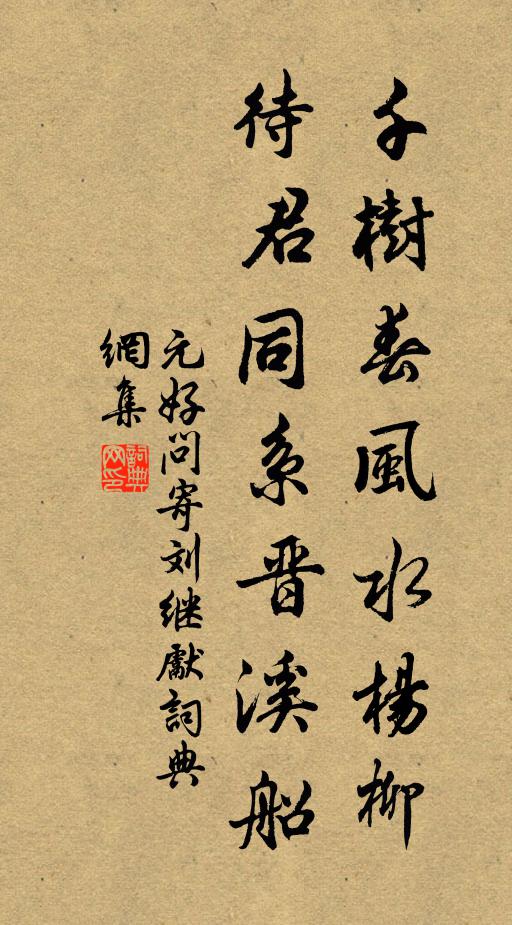 千樹春風水楊柳
待君同系晋溪船
元好問寄刘继獻詞典
網集
詞典網印